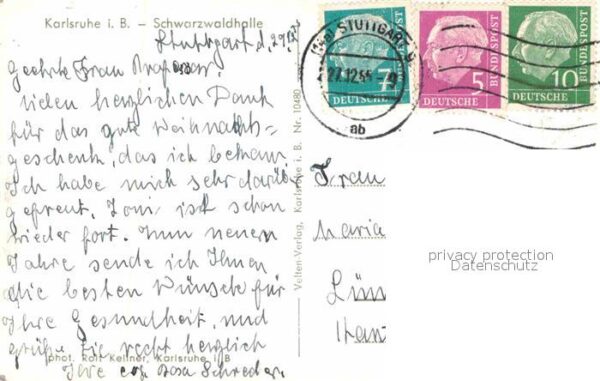 Karlsruhe i. B. – Schwarzwaldhalle
Stuttgart d. 29.
Geehrte Frau Professor,
vielen herzlichen Dank
für das gute Weihnachts-
geschenk, das ich bekam.
Ich habe mich sehr darüber
gefreut. Toni ist schon
wieder fort. Zum neuen
Jahre sende ich Ihnen
die besten Wünsche für
Ihre Gesundheit, und
grüße Sie recht herzlich
phot. Rolf Kellner, Karlsruhe i. B
Ihre Rosa Schreder.
Velten-Verlag, Karlsruhe i. B. Nr. 10480
STUTTGART 9
27.12.55
ab
7
DEUTSCHE
BUNDESPOST
5
DEUTSCHE
BUNDESPOST
10
DEUTSCHE
BUNDESPOST
Frau
Maria
Lün
Han
privacy protection
Datenschutz